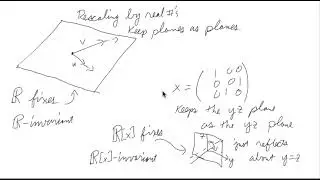 Rescaling by real #'s
Keep planes as planes
v
ℝ fixes
ℝ-invariant
x = ( 1 0 0
0 0 1
0 1 0 )
Keeps the yz plane
as the yz plane
ℝ[x] fixes
ℝ[x]-invariant
z
y
just reflects
about y=z